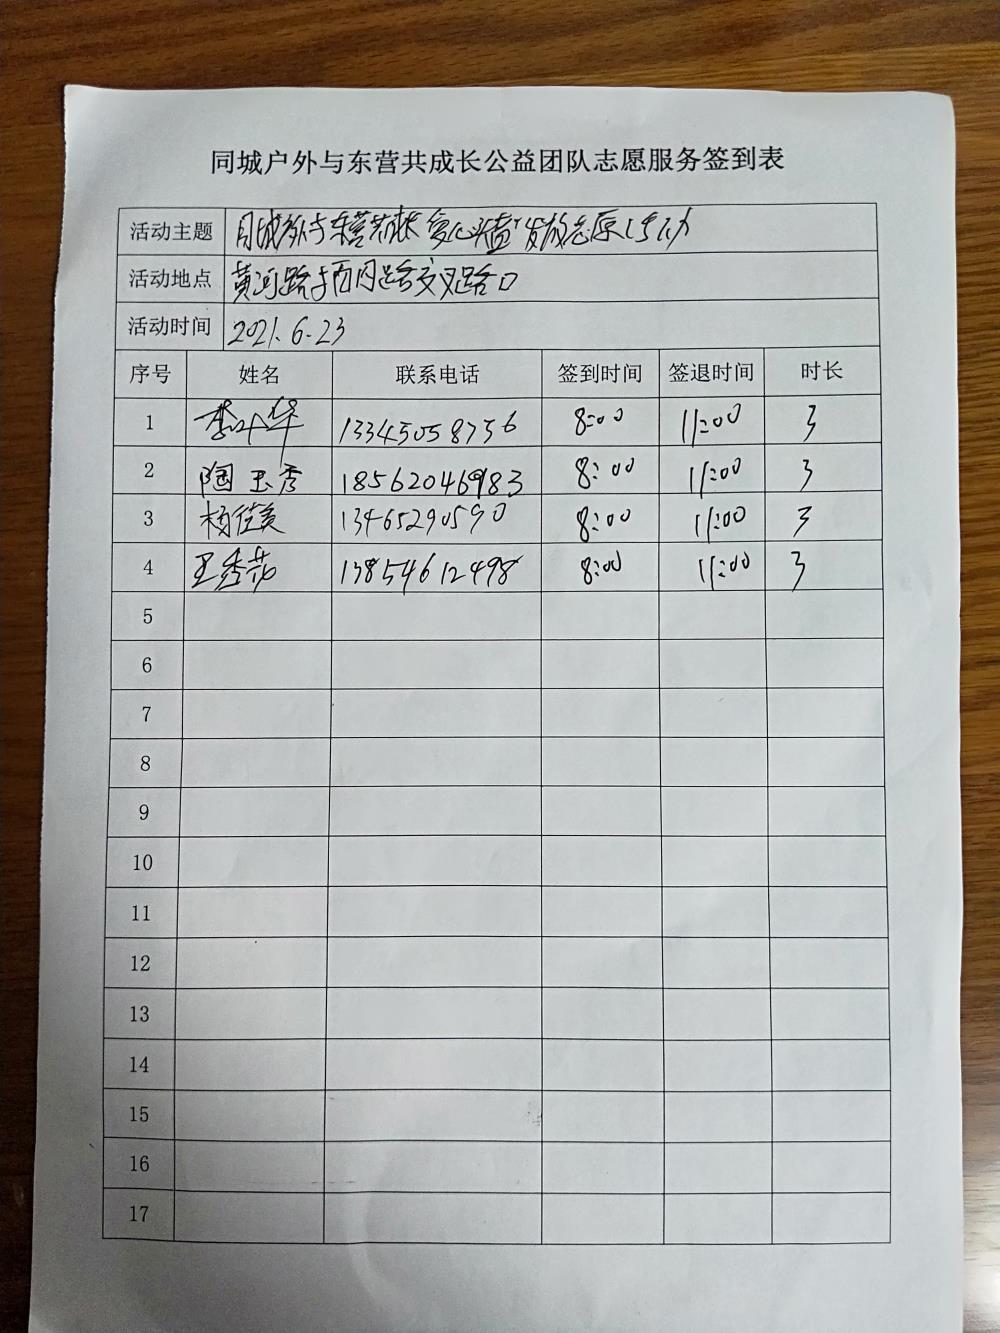 同城户外与东营共成长公益团队志愿服务签到表
活动主题 同城户外与东营共成长爱心头盔发放志愿活动
活动地点 黄河路与西四路交叉路口
活动时间 2021.6.23
序号 姓名 联系电话 签到时间 签退时间 时长
1 李小华 13345058756 8:00 11:00 3
2 陶玉秀 18562046983 8:00 11:00 3
3 杨佳美 13465290590 8:00 11:00 3
4 王秀花 13854612498 8:00 11:00 3
5
6
7
8
9
10
11
12
13
14
15
16
17